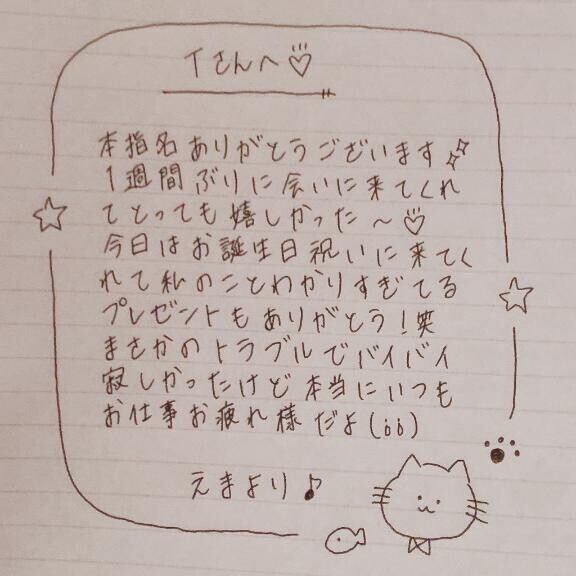 Tさんへ♡
本指名ありがとうございます
1週間ぶりに会いに来てくれ
てとっても嬉しかった〜♡
今日はお誕生日祝いに来てく
れて私のことわかりすぎてる
プレゼントもありがとう!笑
まさかのトラブルでバイバイ
寂しかったけど本当にいつも
お仕事お疲れ様だよ(66)
えまより♪